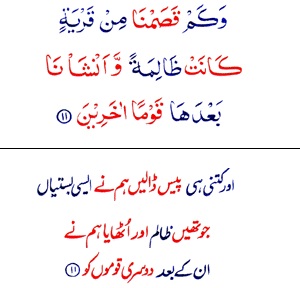 وَكَمْ قَصَمْنَا مِنْ قَرْيَةٍ
كَانَتْ ظَالِمَةً وَّاَنْشَاْنَا
بَعْدَهَا قَوْمًا اٰخَرِيْنَ ⑪
اور کتنی ہی پیس ڈالیں ہم نے ایسی بستیاں
جو تھیں ظالم اور اُٹھایا ہم نے
ان کے بعد دوسری قوموں کو ⑪